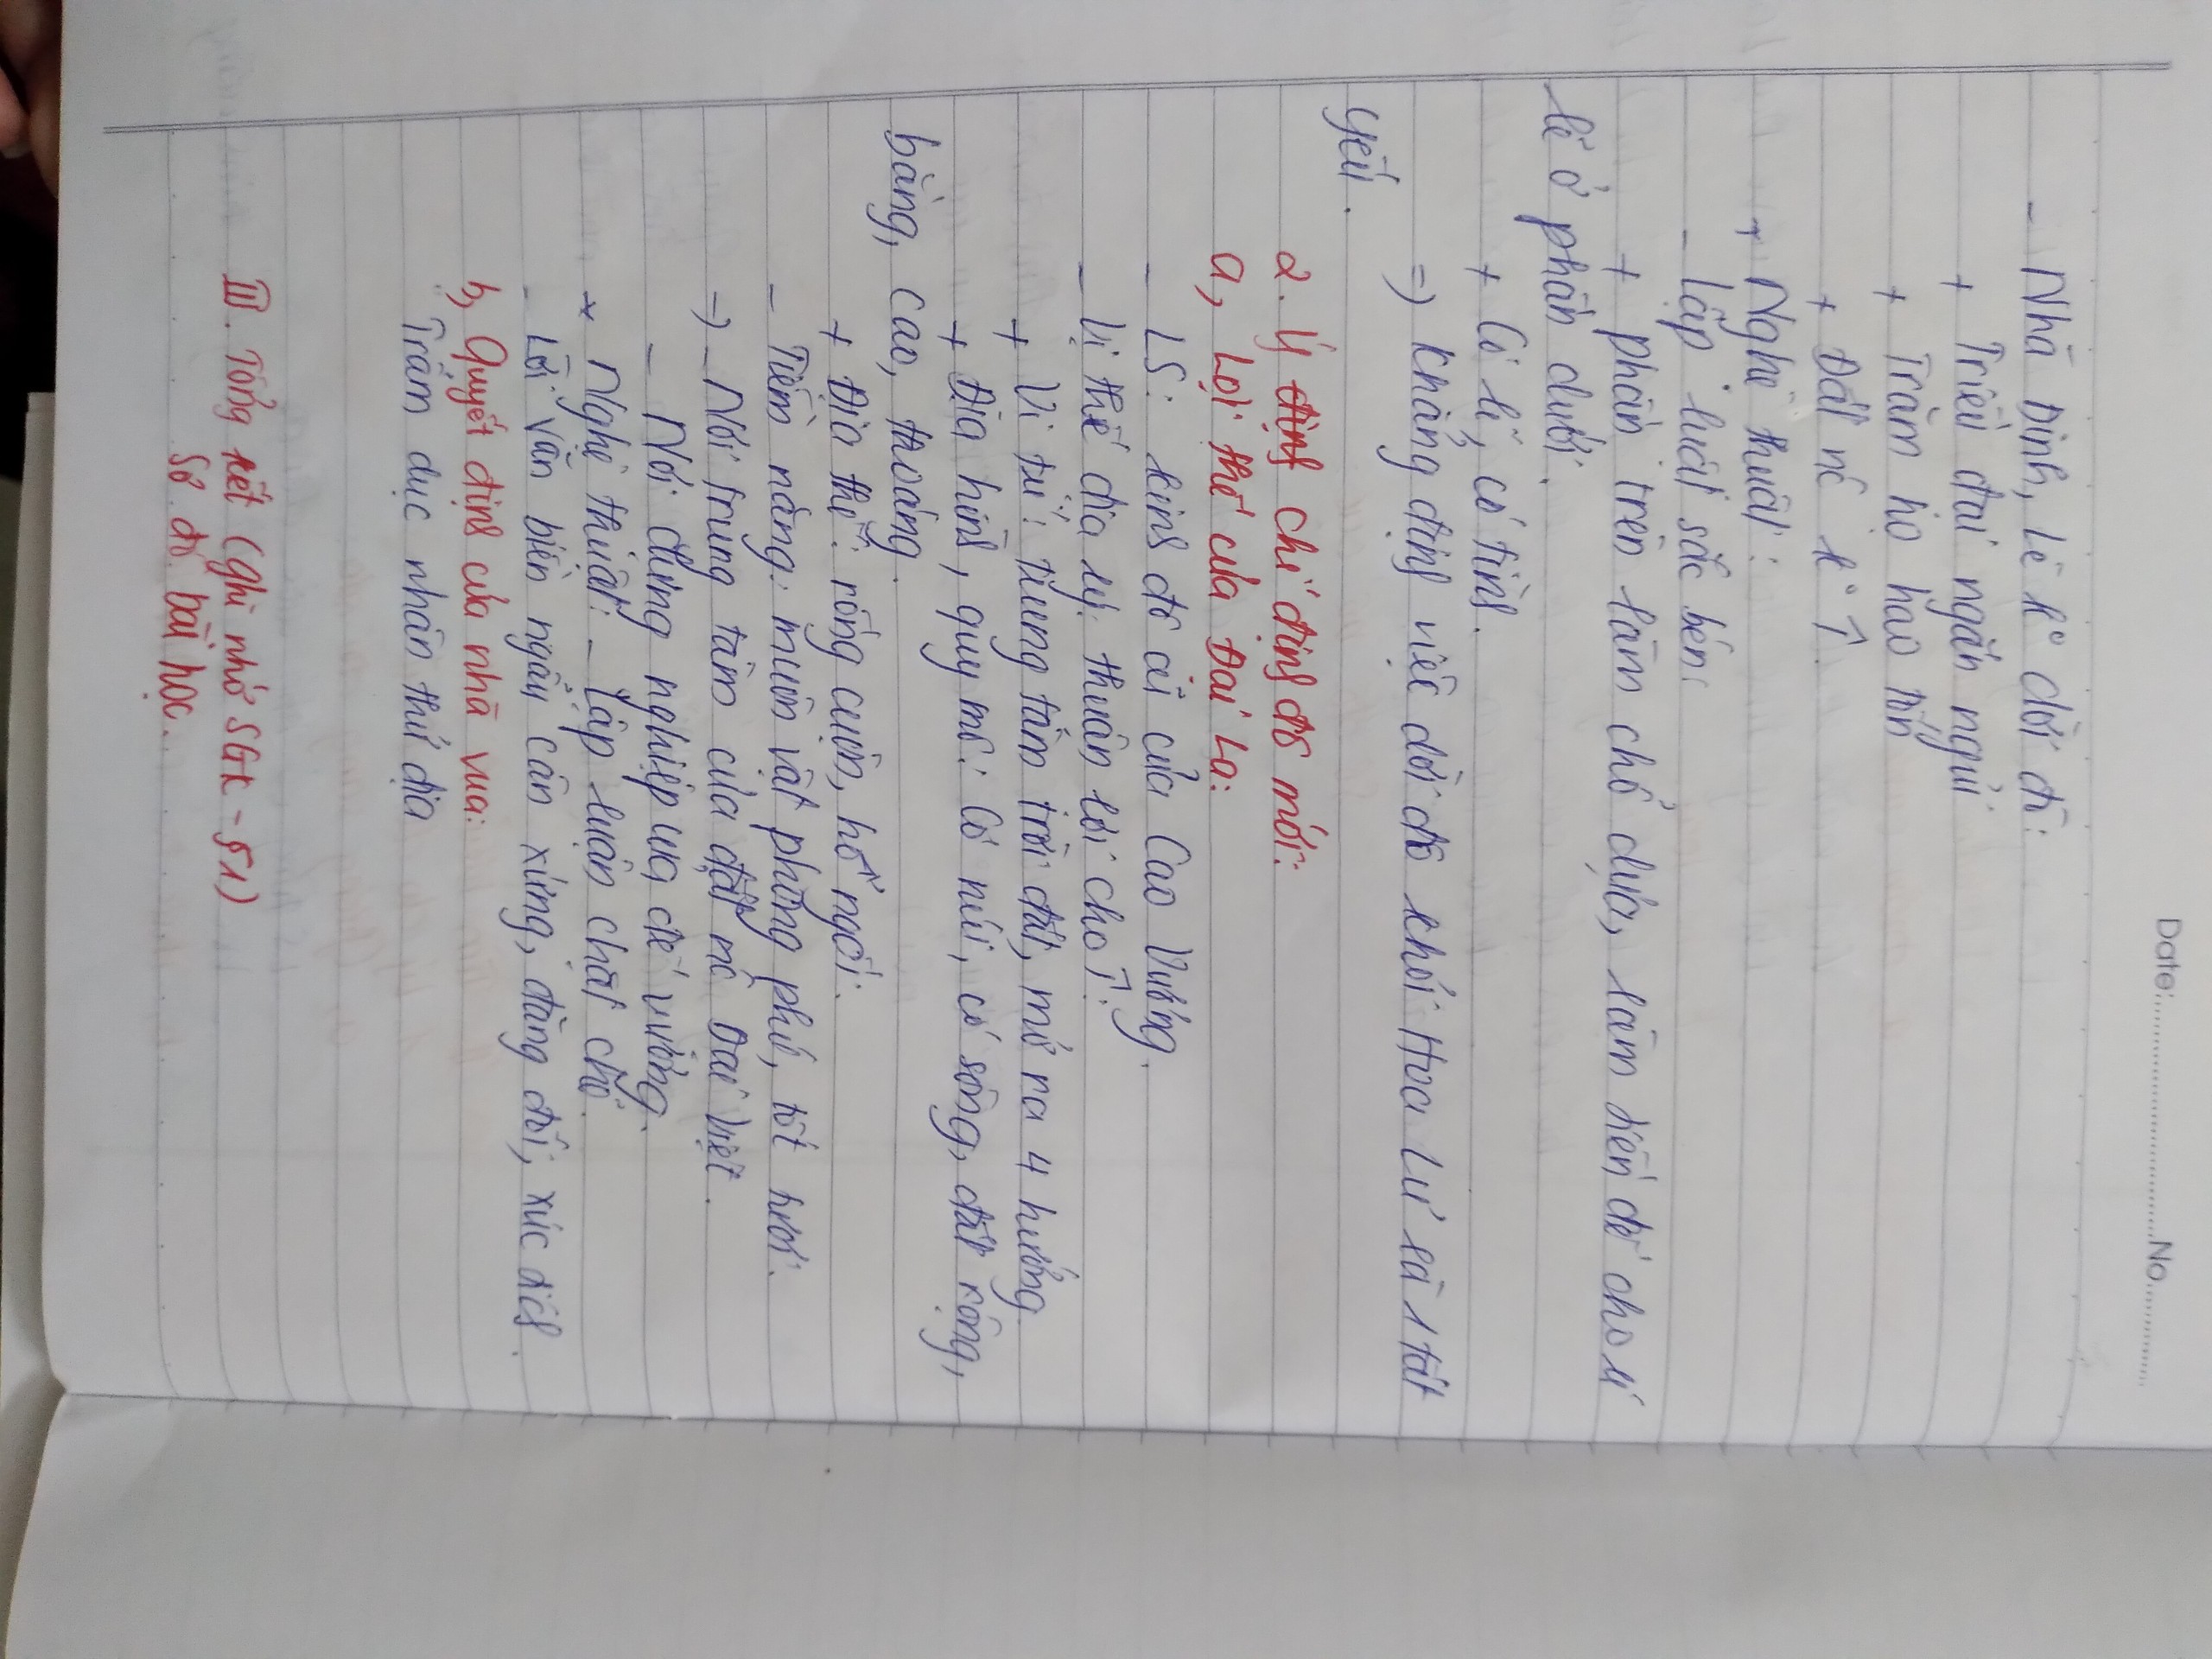 Date:..............................No..............
- Nhà Đinh, Lê k° dời đô:
+ Triều đại ngắn ngủi
+ Trăm họ hao tốn
+ Đất nc k° ↑.
+ Nghệ thuật:
- Lập luật sắc bén:
+ phần trên làm chỗ dựa, làm tiền đề cho lí
lẽ ở phần dưới.
+ Có lí, có tình.
=> Khẳng định việc dời đô khỏi Hoa Lư là 1 tất
yếu.
2. Ý định chỉ định đô mới:
a, Lợi thế của Đại La:
- LS: kinh đô cũ của Cao Vương.
- Vị thế địa lý: thuận lợi cho ↑:
+ Vị trí: trung tâm trời đất, mở ra 4 hướng
+ Địa hình, quy mô: Có núi, có sông, đất rộng,
bằng, cao, thoáng.
+ Địa thế: rồng cuộn, hổ ngồi.
- Tiềm năng: muôn vật phong phú, tốt tươi.
-> - Nơi trung tâm của đất nc Đại Việt.
- Nơi dựng nghiệp của đế vương.
* Nghệ thuật: - Lập luận chặt chẽ.
- Lời văn biền ngẫu cân xứng, đăng đối, xúc tích.
b, Quyết định của nhà vua:
"Trẫm dục nhân thử địa
III. Tổng kết (Ghi nhớ SGK - 51)
Sơ đồ bài học.